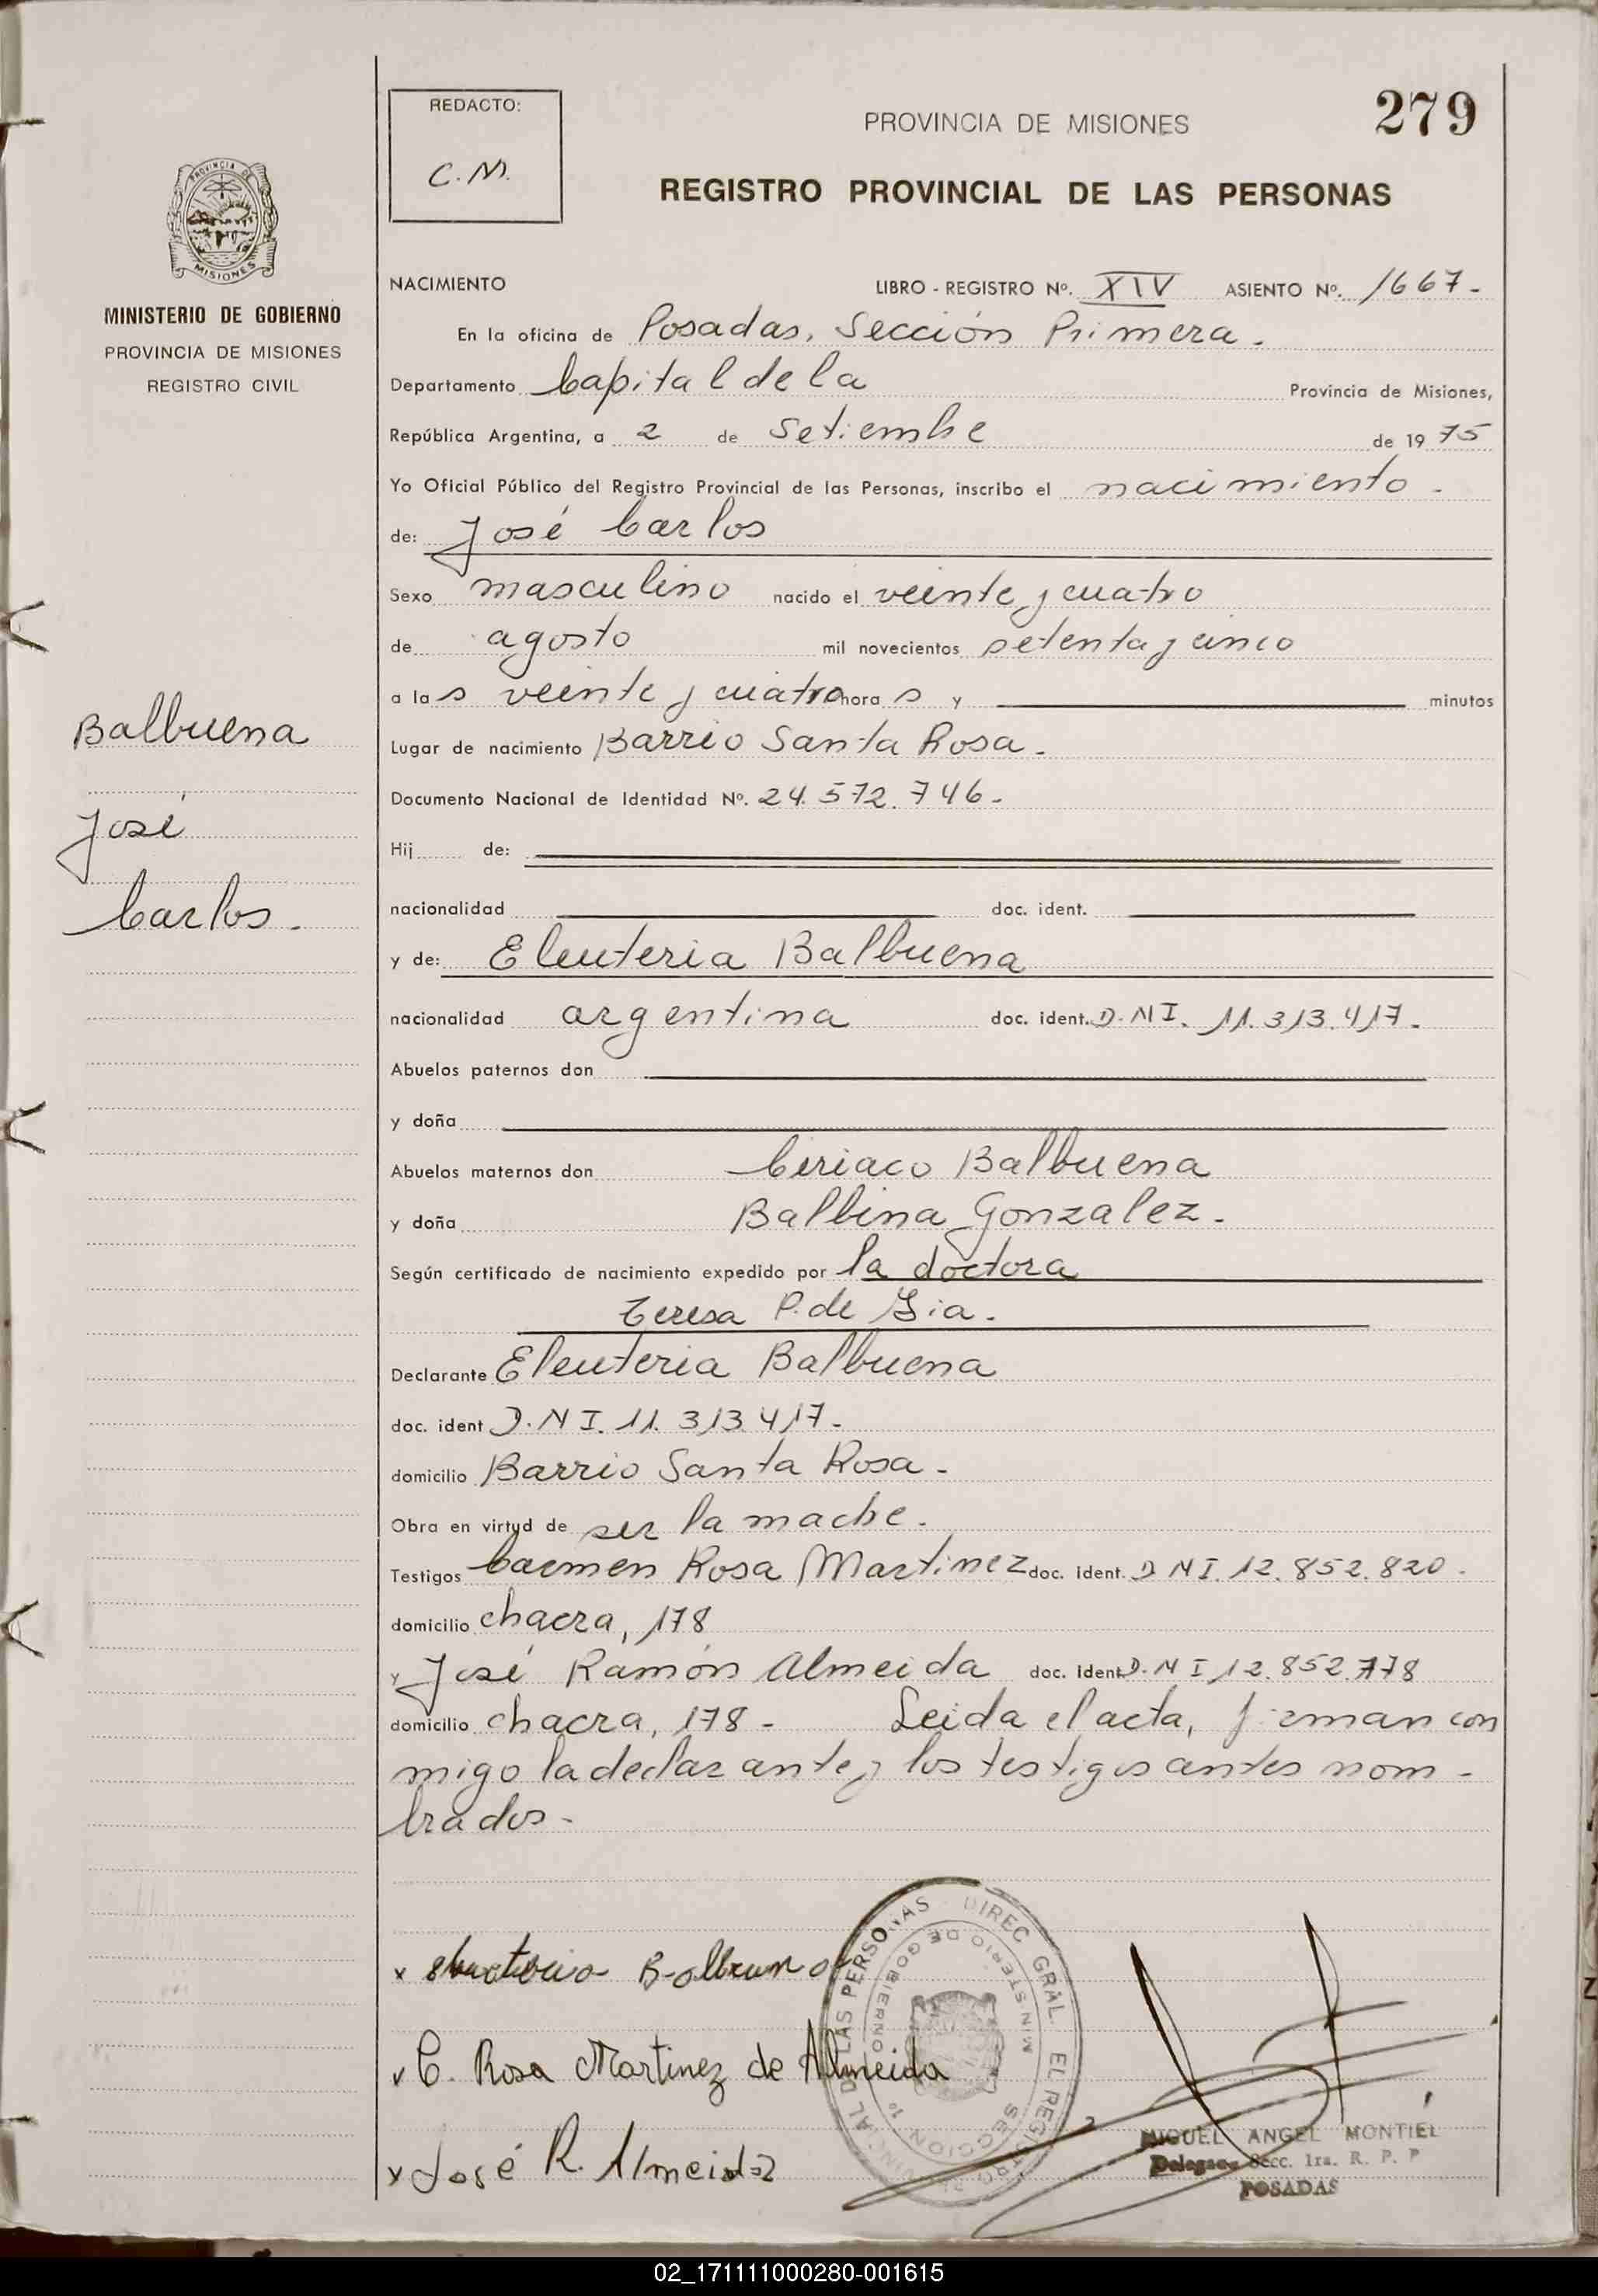 279
REDACTO:
C.M.
PROVINCIA DE MISIONES
REGISTRO PROVINCIAL DE LAS PERSONAS
PROVINCIA DE
MISIONES
MINISTERIO DE GOBIERNO
PROVINCIA DE MISIONES
REGISTRO CIVIL
Balbuena
José
Carlos.
NACIMIENTO LIBRO - REGISTRO Nº. XIV ASIENTO Nº. 1667-
En la oficina de Posadas, Sección Primera.
Departamento Capital de la Provincia de Misiones,
República Argentina, a 2 de Setiembre de 1975
Yo Oficial Público del Registro Provincial de las Personas, inscribo el nacimiento.
de: José Carlos
Sexo masculino nacido el veinte y cuatro
de agosto mil novecientos setenta y cinco
a las veinte y cuatro horas y minutos
Lugar de nacimiento Barrio Santa Rosa.
Documento Nacional de Identidad Nº. 24.572.746-
Hij de:
nacionalidad doc. ident.
y de: Eleuteria Balbuena
nacionalidad argentina doc. ident. D.N.I. 11.313.417.
Abuelos paternos don
y doña
Abuelos maternos don Ciriaco Balbuena
y doña Balbina Gonzalez.
Según certificado de nacimiento expedido por la doctora
Teresa P. de
Declarante Eleuteria Balbuena
doc. ident D.N I. 11.313.417-
domicilio Barrio Santa Rosa-
Obra en virtud de ser la madre.
Testigos Carmen Rosa Martinez doc. ident. D N I. 12.852.820.
domicilio chacra, 178
y José Ramón Almeida doc. ident D.N I 12.852.778
domicilio chacra, 178- Leida el acta, firman con
migo la declarante y los testigos antes nom-
brados-
x Eleuteria Balbuena
x C. Rosa Martinez de Almeida
x José R. Almeida
DIREC GRAL. EL REGISTRO PROVINCIAL DE LAS PERSONAS
MINISTERIO DE GOBIERNO
SECCION 1º
MIGUEL ANGEL MONTIEL
Delegado Secc. 1ra. R. P. P
POSADAS
02_171111000280-001615